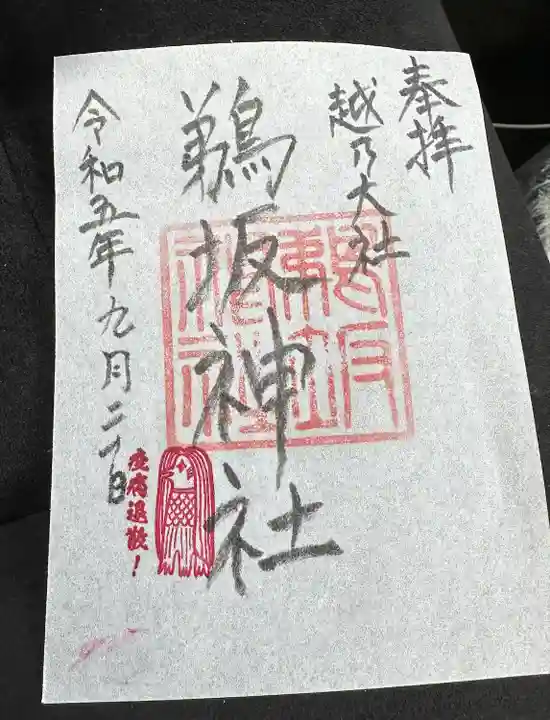 奉拝
越乃大社
鵜坂神社
令和五年九月二十日
疫病退散!
鵜坂神社